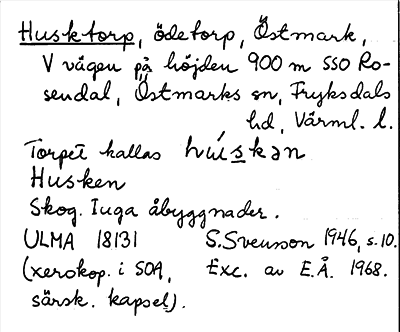 Husktorp, ödetorp, Östmark,
V vägen på höjden 900 m SSO Ro-
sendal, Östmarks sn, Fryksdals
hd, Värml. l.
Torpet kallas húskən
Husken
Skog. Inga åbyggnader.
ULMA 18131 S.Svenson 1946, s.10.
(xerokop. i SOA, Exc. av E.Å. 1968.
särsk. kapsel).